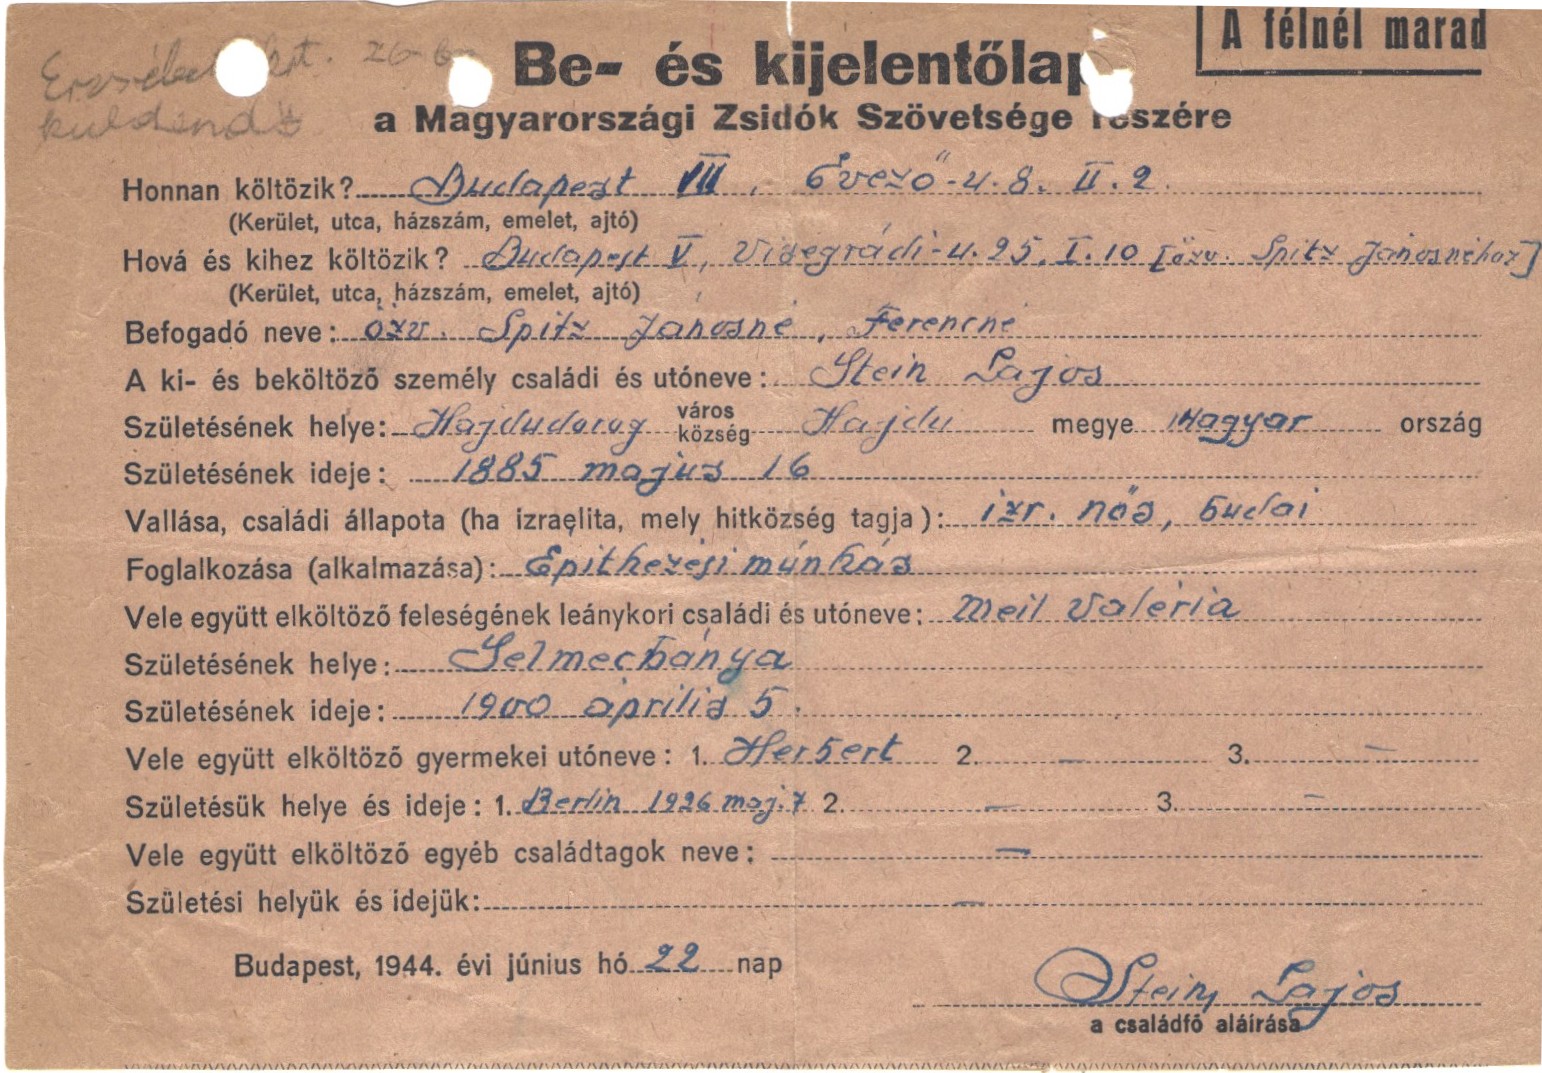 A félnél marad
26-
küldendő
Be- és kijelentőlap
a Magyarországi Zsidók Szövetsége részére
Honnan költözik? Budapest VII, Evező-u. 8. II. 2.
(Kerület, utca, házszám, emelet, ajtó)
Hová és kihez költözik? Budapest V, Visegrádi-u. 25. I. 10 [özv. Spitz Jánosnéhoz]
(Kerület, utca, házszám, emelet, ajtó)
Befogadó neve: özv. Spitz Jánosné, Ferencné
A ki- és beköltöző személy családi és utóneve: Stein Lajos
Születésének helye: Hajdudorog város község Hajdu megye Magyar ország
Születésének ideje: 1885 május 16
Vallása, családi állapota (ha izraelita, mely hitközség tagja): izr. nős, budai
Foglalkozása (alkalmazása): Epitkezési múnkás
Vele együtt elköltöző feleségének leánykori családi és utóneve: Meil Valéria
Születésének helye: Selmecbánya
Születésének ideje: 1900 április 5.
Vele együtt elköltöző gyermekei utóneve: 1. Herbert 2. — 3. —
Születésük helye és ideje: 1. Berlin 1926 maj. 7 2. — 3. —
Vele együtt elköltöző egyéb családtagok neve: —
Születési helyük és idejük: —
Budapest, 1944. évi június hó 22 nap
Stein Lajos
a családfő aláírása